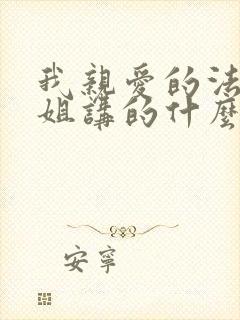 我親愛的法
姐講的什麼
安寧